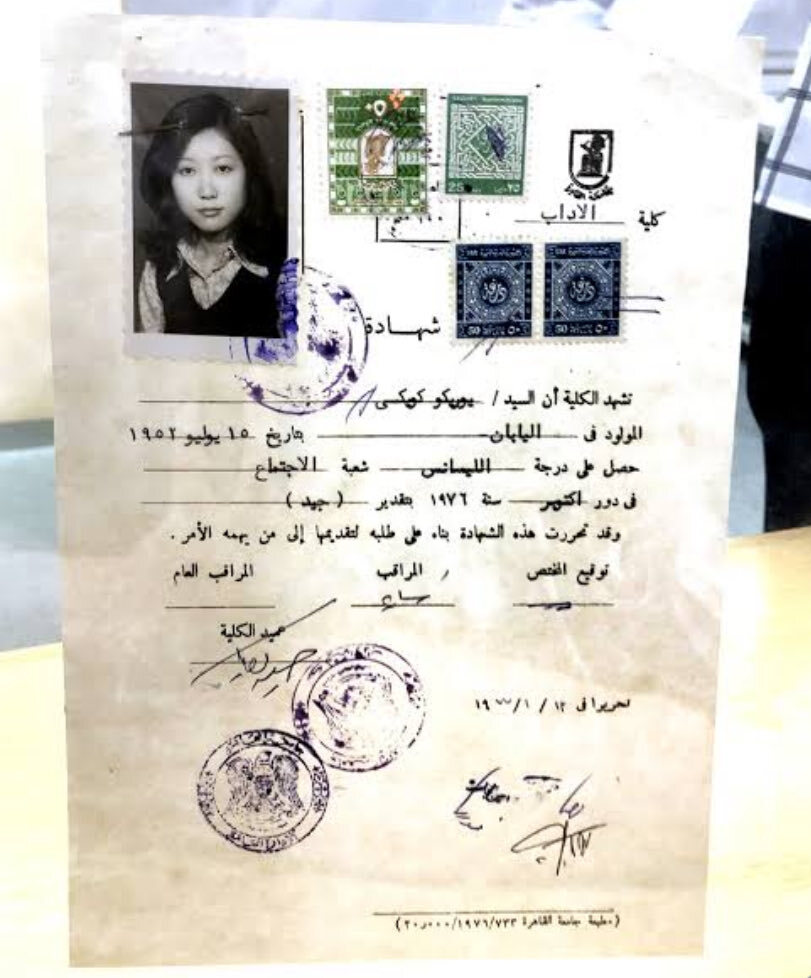 جامعة القاهرة
كلية الاداب
25 ٢٥
50 ٥٠
50 ٥٠
شهـــادة
تشهد الكلية أن السيد / يوريكو كويكى
المولود فى اليابان بتاريخ ١٥ يوليو ١٩٥٢
حصل على درجة الليسانس شعبة الاجتماع
فى دور اكتوبر سنة ١٩٧٦ بتقدير ( جيد )
وقد تحررت هذه الشهادة بناء على طلبه لتقديمها إلى من يهمه الأمر .
توقيع المختص المراقب المراقب العام
عميد الكلية
تحريرا فى ١٢ / ١ / ١٩٧٧
(مطبعة جامعة القاهرة ٧٣٣/١٩٧٦/٢٠٠٠٠)